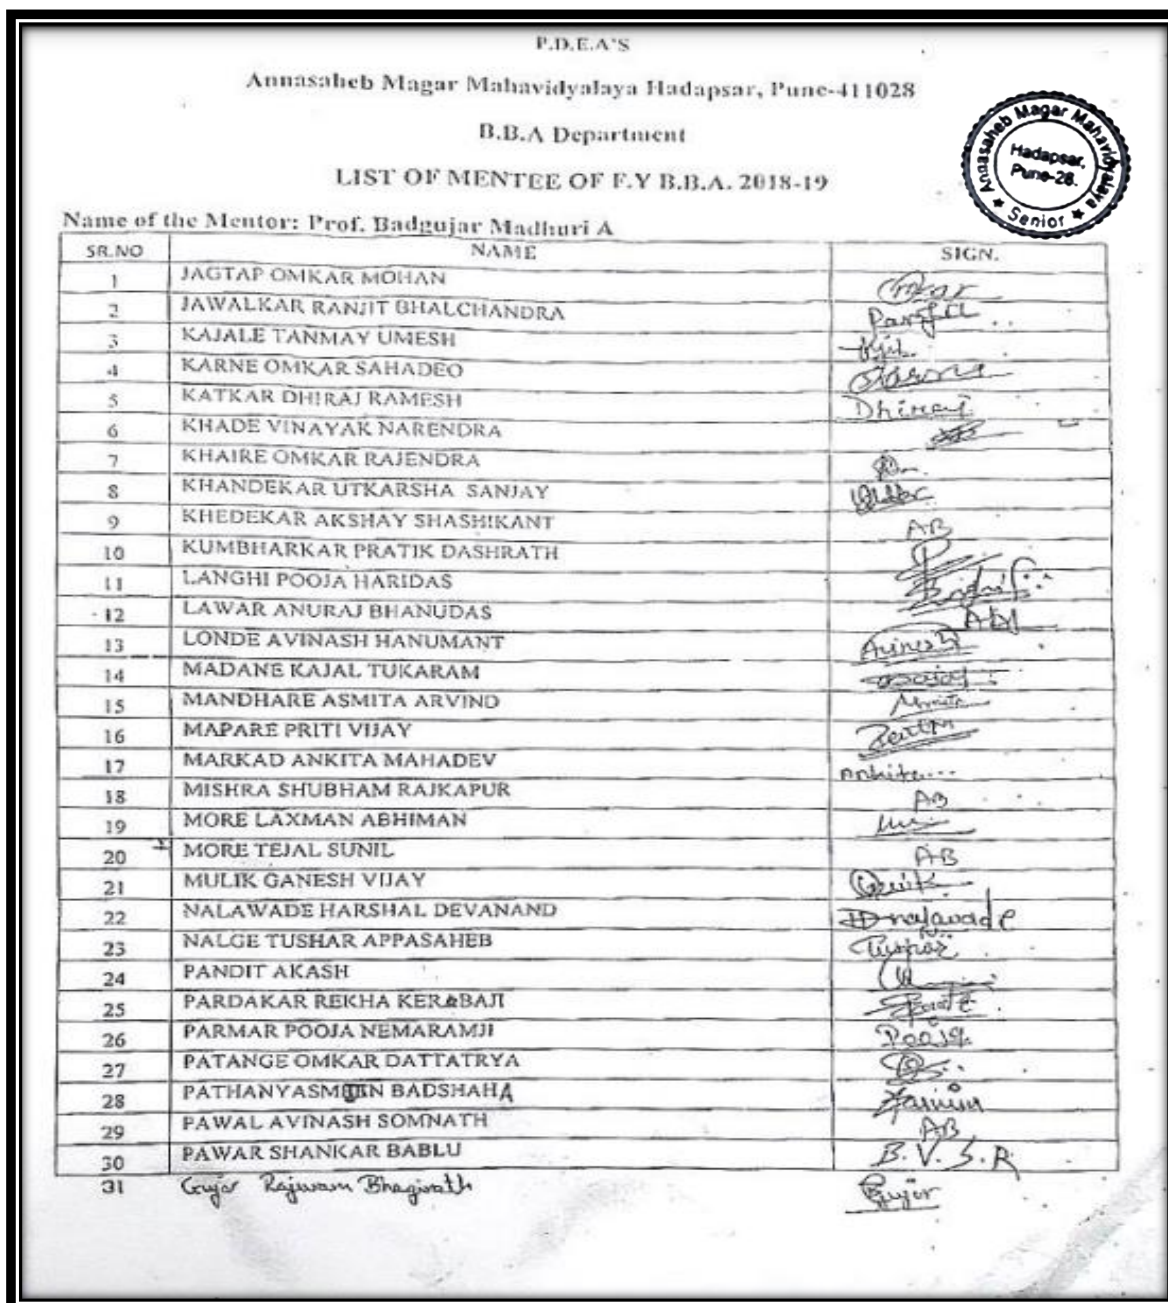 P.D.E.A'S
Annasaheb Magar Mahavidyalaya Hadapsar, Pune-411028
B.B.A Department
LIST OF MENTEE OF F.Y B.B.A. 2018-19
Annasaheb Magar Mahavidyalaya
Hadapsar,
Pune-28.
★ Senior ★
Name of the Mentor: Prof. Badgujar Madhuri A
SR.NO NAME SIGN.
1 JAGTAP OMKAR MOHAN Omkar
2 JAWALKAR RANJIT BHALCHANDRA
3 KAJALE TANMAY UMESH
4 KARNE OMKAR SAHADEO
5 KATKAR DHIRAJ RAMESH Dhiraj
6 KHADE VINAYAK NARENDRA
7 KHAIRE OMKAR RAJENDRA
8 KHANDEKAR UTKARSHA SANJAY
9 KHEDEKAR AKSHAY SHASHIKANT AB
10 KUMBHARKAR PRATIK DASHRATH
11 LANGHI POOJA HARIDAS
12 LAWAR ANURAJ BHANUDAS
13 LONDE AVINASH HANUMANT
14 MADANE KAJAL TUKARAM
15 MANDHARE ASMITA ARVIND
16 MAPARE PRITI VIJAY
17 MARKAD ANKITA MAHADEV Ankita
18 MISHRA SHUBHAM RAJKAPUR AB
19 MORE LAXMAN ABHIMAN
20 MORE TEJAL SUNIL AB
21 MULIK GANESH VIJAY
22 NALAWADE HARSHAL DEVANAND
23 NALGE TUSHAR APPASAHEB
24 PANDIT AKASH
25 PARDAKAR REKHA KERABAJI
26 PARMAR POOJA NEMARAMJI Pooja
27 PATANGE OMKAR DATTATRYA
28 BADSHAHA
29 PAWAL AVINASH SOMNATH AB
30 PAWAR SHANKAR BABLU B.V.S.R
31 Gujar Bhagirath Gujar